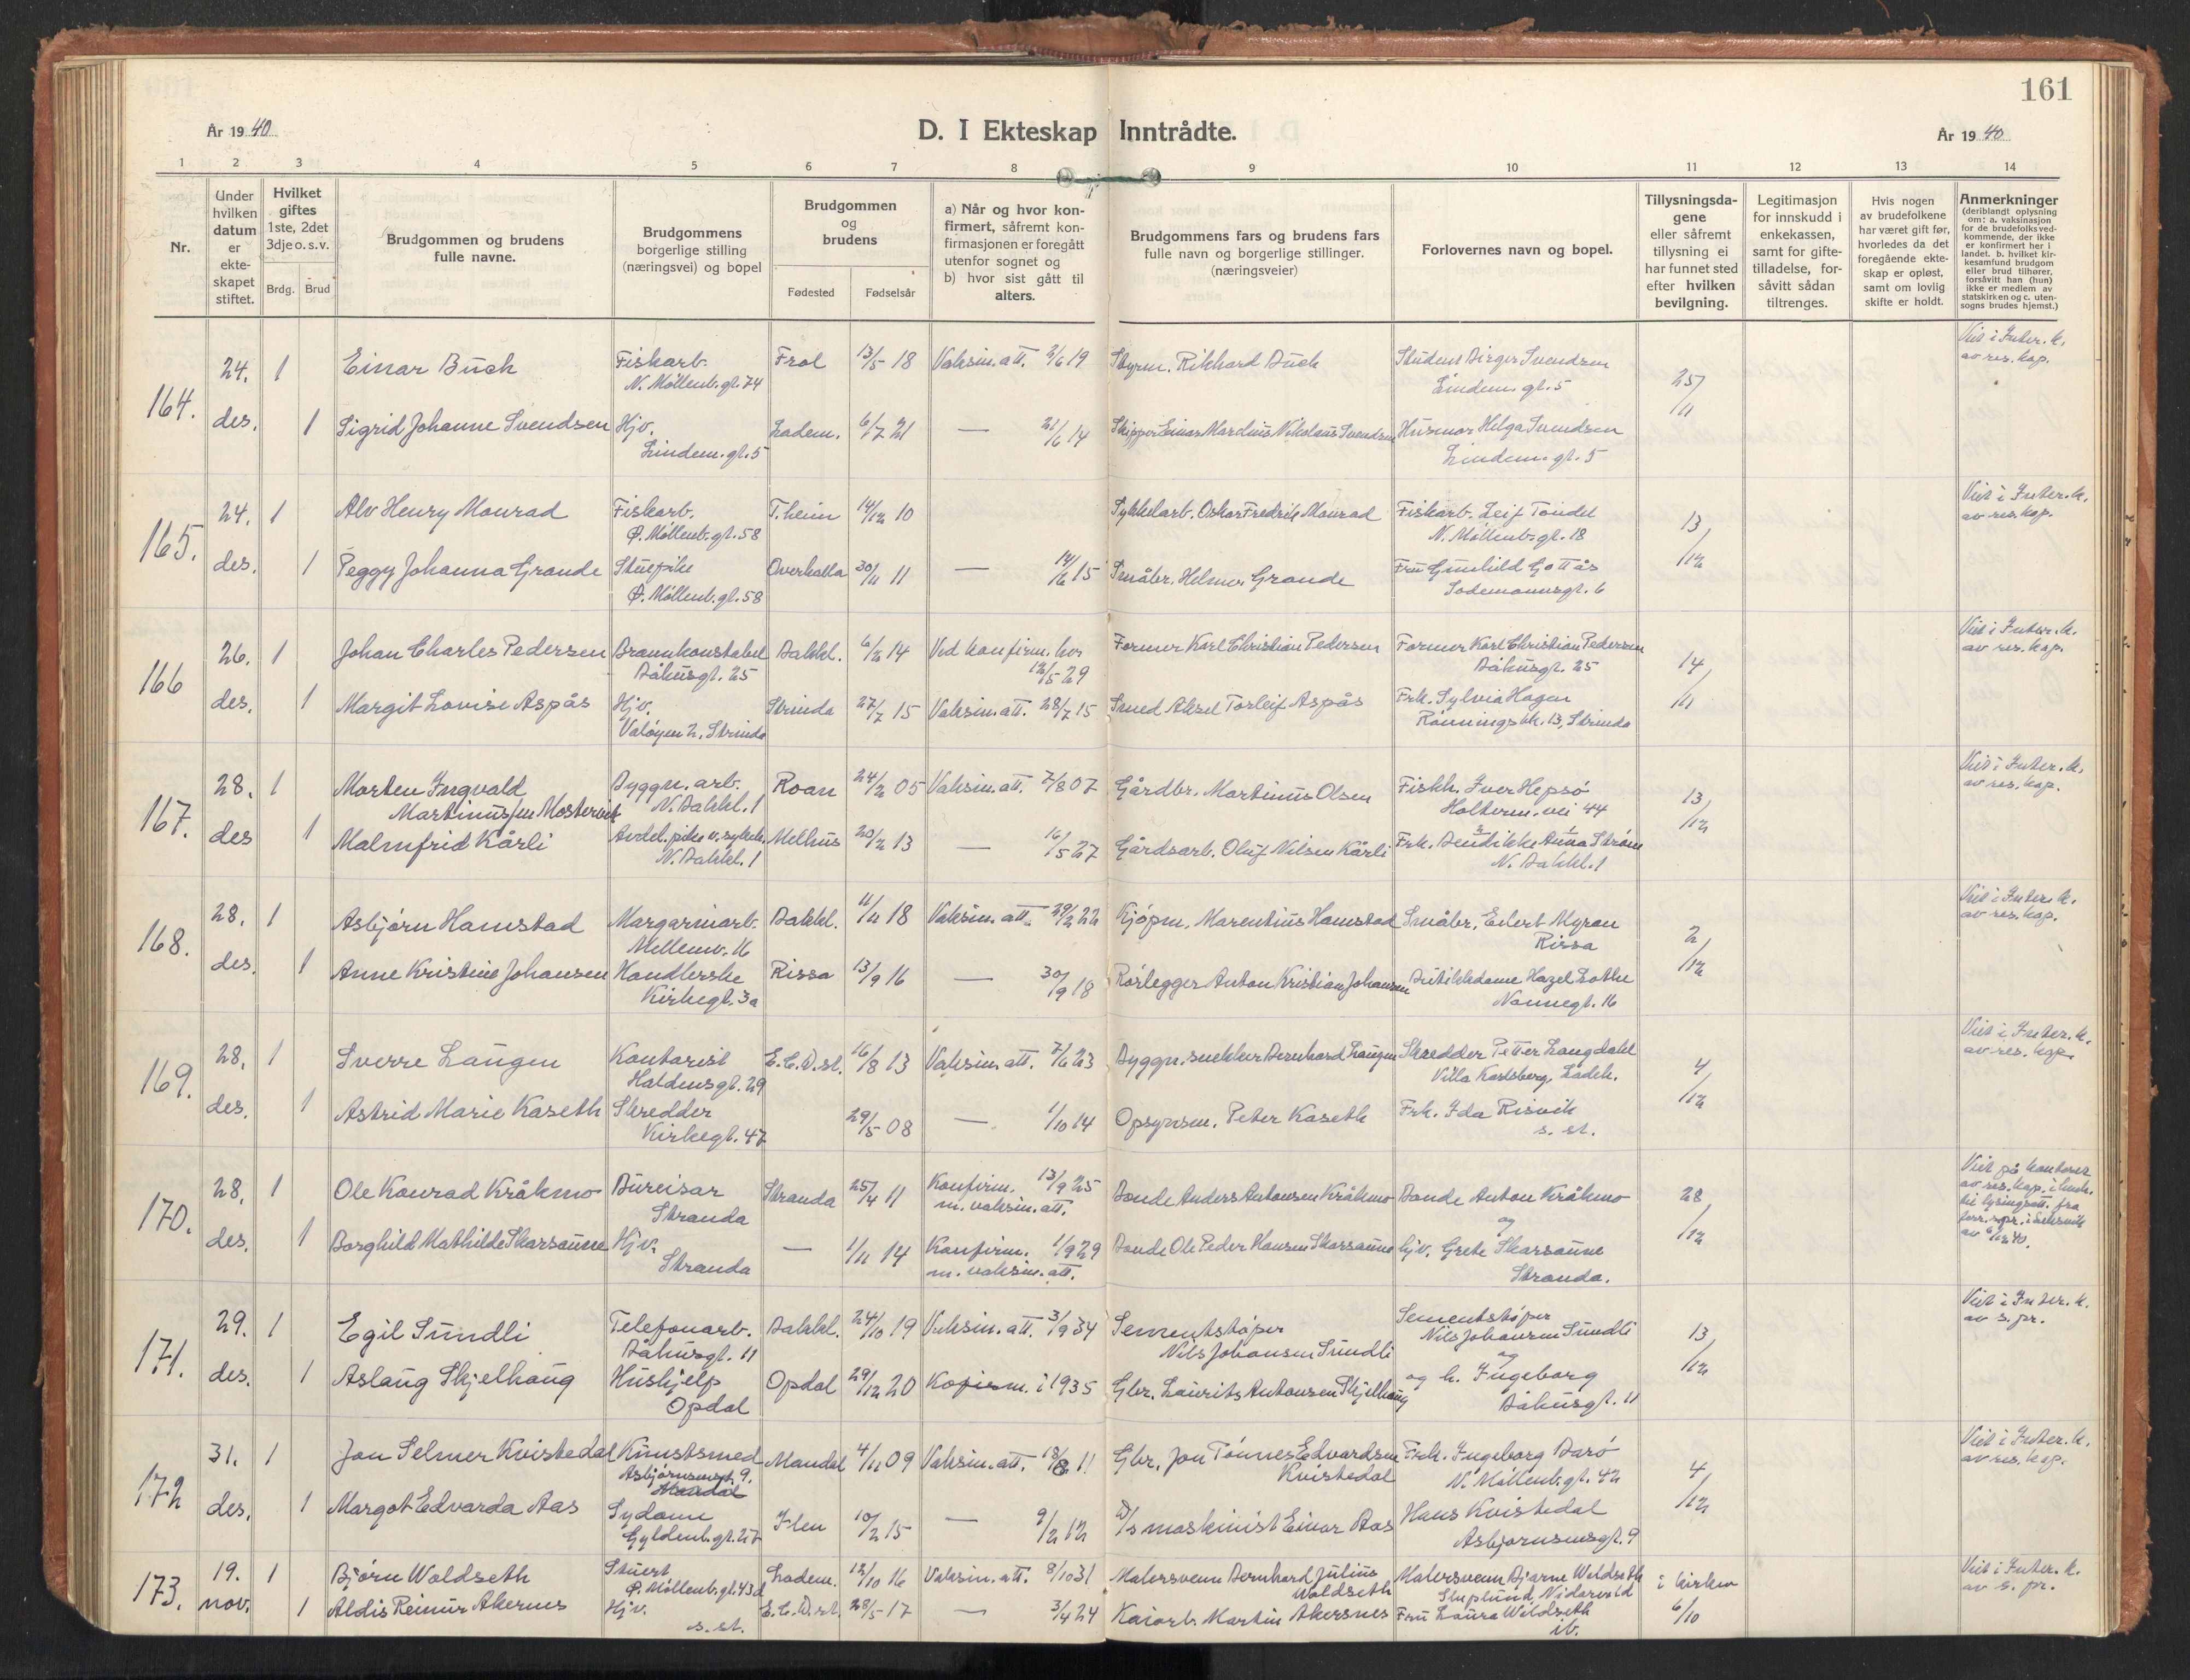 161
År 1940
D. I Ekteskap Inntrådte.
År 1940
1 2 3 4 5 6 7 8 9 10 11 12 13 14
Nr.
Under hvilken datum er ekte- skapet stiftet.
Hvilket giftes 1ste, 2det 3dje o. s. v.
Brdg. Brud
Brudgommen og brudens fulle navne.
Brudgommens borgerlige stilling (næringsvei) og bopel
Brudgommen og brudens
Fødested Fødselsår
a) Når og hvor kon- firmert, såfremt kon- firmasjonen er foregått utenfor sognet og b) hvor sist gått til alters.
Brudgommens fars og brudens fars fulle navn og borgerlige stillinger. (næringsveier)
Forlovernes navn og bopel.
Tillysningsda- gene eller såfremt tillysning ei har funnet sted efter hvilken bevilgning.
Legitimasjon for innskudd i enkekassen, samt for gifte- tilladelse, for- såvitt sådan tiltrenges.
Hvis nogen av brudefolkene har været gift før, hvorledes da det foregående ekte- skap er opløst, samt om lovlig skifte er holdt.
Anmerkninger (deriblandt oplysning om: a. vaksinasjon for de brudefolks ved- kommende, der ikke er konfirmert her i landet. b. hvilket kir- kesamfund brudgom eller brud tilhører, forsåvitt han (hun) ikke er medlem av statskirken og c. uten- sogns brudes hjemst.)
164. 24. des. 1 Einar Buch Fiskarb. N. Møllenb.gt. 74 Frol 13/5 18 Vaksin.att. 2/6 19 Styrm. Rikhard Buch Student Birger Svendsen Lindem.gt. 5 25/11 Viet i Inter.k. av res.kap.
1 Sigrid Johanne Svendsen Hjv. Lindem.gt. 5 Ladem. 6/7 21 — 21/6 14 Skipper Einar Mardius Nikolaus Svendsen Husmor Helga Svendsen Lindem.gt. 5
165. 24. des. 1 Alv Henry Monrad Fiskarb. Ø. Møllenb.gt. 58 T.heim 14/12 10 Sykkelarb. Oskar Fredrik Monrad Fiskarb. Leif Tondel N. Møllenb.gt. 18 13/12 Viet i Inter.k. av res.kap.
1 Peggy Johanna Grande Stuepike Ø. Møllenb.gt. 58 Overhalla 30/11 11 — 14/6 15 Småbr. Helmer Grande Fru Gunhild Gottås Sodemannsgt. 6
166 26. des. 1 Johan Charles Pedersen Brannkonstabel Båhusgt. 25 Bakkl. 6/2 14 Ved konfirm. her 12/5 29 Former Karl Christian Pedersen Former Karl Christian Pedersen Båhusgt. 25 14/11 Viet i Inter.k. av res.kap.
1 Margit Lovise Aspås Hjv. Valøyen 2, Strinda Strinda 27/7 15 Vaksin.att. 28/7 15 Smed Aksel Torleif Aspås Frk. Sylvia Hagen Rønningsbk. 13, Strinda
167. 28. des 1 Morten Ingvald Martinussen Mostervik Byggn.arb. N. Bakkl. 1 Roan 24/2 05 Vaksin.att. 7/8 07 Gårdbr. Martinus Olsen Fiskh. Iver Hepsø Halterm.vei 44 13/12 Viet i Inter.k. av res.kap.
1 Malmfrid Kårli Avdel.pike v. sykeh. N. Bakkl. 1 Melhus 20/2 13 — 16/5 27 Gårdsarb. Oluf Nilsen Kårli Frk. Bendikke Anna Strøm N. Bakkl. 1
168. 28. des. 1 Asbjørn Hamstad Margarinarb. Mellemv. 16 Bakkl. 11/11 18 Vaksin.att. 29/2 22 Kjøpm. Marentius Hamstad Småbr. Eilert Myran Rissa 2/12 Viet i Inter.k. av res.kap.
1 Anne Kristine Johansen Handlerske Kirkegt. 3a Rissa 13/9 16 — 30/9 18 Rørlegger Anton Kristian Johansen Butikkdame Hazel Lothe Nonnegt. 16
169. 28. des. 1 Sverre Langen Kontorist Haldensgt. 29 E.C.D.st. 16/8 13 Vaksin.att. 7/6 23 Byggn.snekker Bernhard Langen Skredder Petter Langdahl Villa Karlsberg, Ladeh. 4/12 Viet i Inter.k. av res.kap.
1 Astrid Marie Kaseth Skredder Kirkegt. 47 29/5 08 — 1/10 14 Opsynsm. Peter Kaseth Frk. Ida Risvik s. st.
170. 28. des. 1 Ole Konrad Kråkmo Bureisar Stranda Stranda 25/4 11 Konfirm. 13/9 25 m. vaksin.att. Bonde Anders Antonsen Kråkmo Bonde Anton Kråkmo og 28/12 Viet på kontoret av res.kap. lysingsatt. fra
1 Borghild Mathilde Skarsaune Hjv. Stranda — 1/11 14 Konfirm. 1/9 29 m. vaksin.att. Bonde Ole Peder Hansen Skarsaune hjv. Grete Skarsaune Stranda.
171. 29. des. 1 Egil Sundli Telefonarb. Båhusgt. 11 Bakkl. 24/10 19 Vaksin.att. 3/9 34 Sementstøper Nils Johansen Sundli Sementstøper Nils Johansen Sundli og 13/12 Viet i Inter.k. av s.pr.
1 Aslaug Skjelhaug Hushjelp Opdal Opdal 29/12 20 i 1935 Gbr. Laurits Antonsen Skjelhaug og h. Ingeborg Båhusgt. 11
172 31. des. 1 Jon Selmer Kvistedal Kunstsmed Asbjørnsensgt. 9. Mandal Mandal 4/11 09 Vaksin.att. 18/8 11 Gbr. Jon Tønnes Edvardsen Kvistedal Frk. Ingeborg Barø N. Møllenb.gt. 42 4/12 Viet i Inter.k. av res.kap.
1 Margot Edvarda Aas Sydame Gyldenb.gt. 27 Ilen 10/2 15 — 9/2 12 D/s maskinist Einar Aas Hans Kvistedal Asbjørnsensgt. 9
173. 19. nov. 1 Bjørn Woldseth Stuert Ø. Møllenb.gt. 43d Ladem. 12/10 16 Vaksin.att. 8/10 31 Malersvenn Bernhard Julius Woldseth Malersvenn Bjarne Woldseth Sluplund, Nidarvold i kirken 6/10 Viet i Inter.k. av s.pr.
1 Aldis Reinur Akernes Hjv. s. st. E.C.D.st. 28/5 17 — 3/4 24 Kaiarb. Martin Akersnes Fru Laura Woldseth ib.